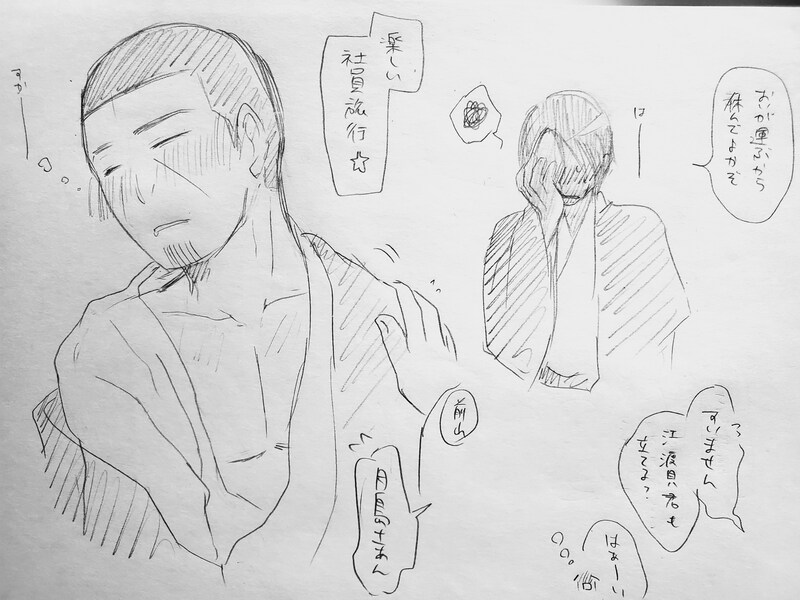 楽しい
社員旅行☆
すかー
はー
おいが運ぶから
休んでよかぞ
前山
月島さぁん
すいません
江渡貝君も
立てる?
はぁーい